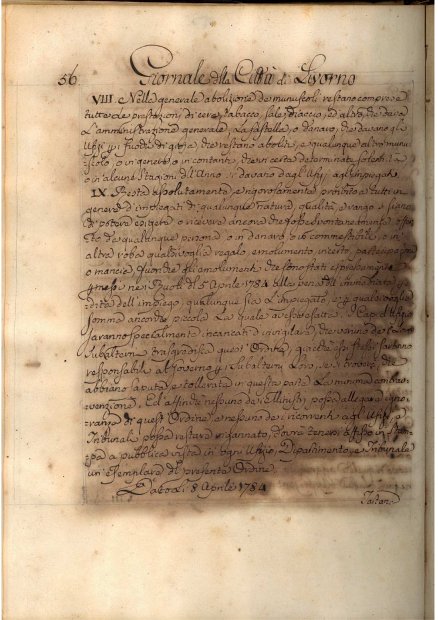 56 Giornale della Città di Livorno
VIII. Nella generale abolizione de munuscoli restano comprese
tutte le prestazioni di cere, tabacco, sale, diaccio, ed altro, che dava
L'amministrazione generale, La fastella, o danaro, che davano gl'
Ufizj fuochi di gioja, che restano aboliti, e qualunque altro munu
scolo, o in genere, o in contante, che in certe determinate solennità
o in alcune stagioni dell'Anno si davano dagl'Ufizj agl'impiegati.
IX. Resta assolutamente, e rigorosamente proibito a tutti in
genere gl'impiegati di qualunque natura, qualità, e rango si siano
di potere esigere o ricevere ancora che fosse spontaneamente offer
to da qualunque persona o in danaro, o in commestibile, o in
altra roba qualsivoglia regalo, emolumento, incerto, partecipazione
o mancia fuori che gli emolumenti che sono stati espressamente
permessi ne' Ruoli del 5 Aprile 1784 alla pena dell'immediata per
dita dell'impiego, qualunque sia L'impiegato, e per qualsivoglia
somma ancorche piccola La quale avesse esatta. I Capi d'Ufizio
saranno specialmente incaricati d'invigilare, che veruno de Loro
Subalterni trasgredisca quest'Ordine, giacchè essi stessi saranno
responsabili al Governo per i Subalterni Loro, se si troverà che
abbiano saputa, e tollerata in questa parte La minima contrav
venzione. Ed affinchè nessuno de Ministri possa allegare igno
ranza di quest'Ordine, e nessuno de ricorrenti agl'Ufizj, e
Tribunali possa restare ingannato, dovrà tenersi affisso in stam
pa a pubblica vista in ogni Ufizio, Dipartimento, e Tribunale
un'Esemplare del presente Ordine.
Data li 8 Aprile 1784